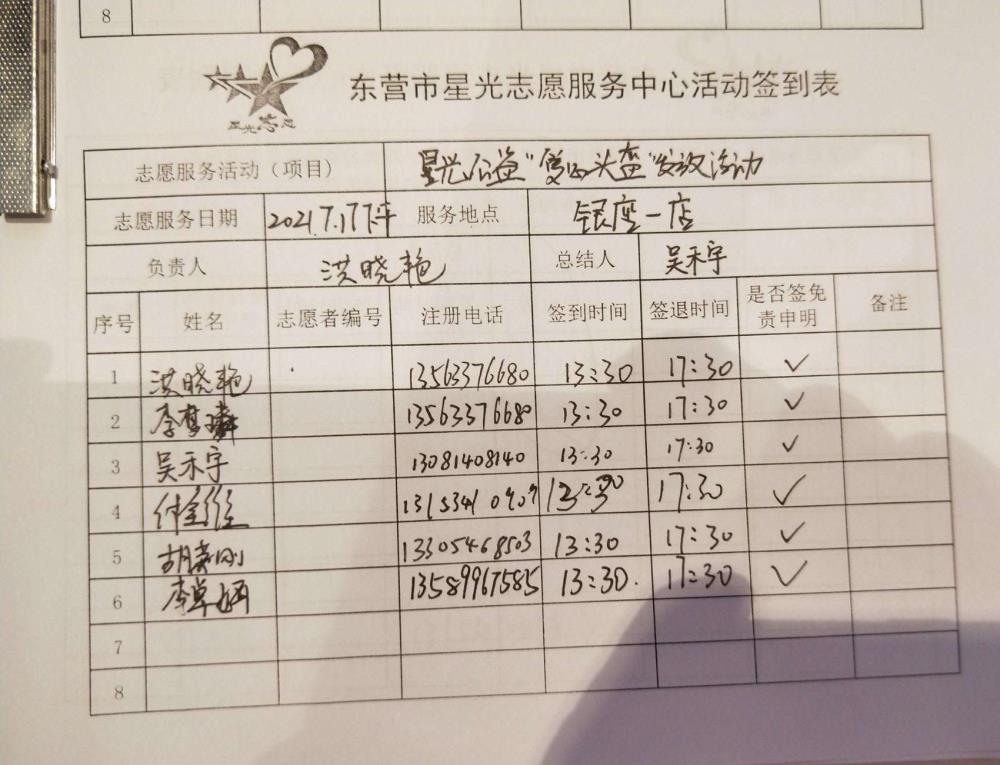 8
星光志愿
东营市星光志愿服务中心活动签到表
志愿服务活动（项目） 星光公益"爱心头盔"发放活动
志愿服务日期 2021.7.17下午 服务地点 银座一店
负责人 洪晓艳 总结人 吴禾宇
序号 姓名 志愿者编号 注册电话 签到时间 签退时间 是否签免责申明 备注
1 洪晓艳 13563376680 13:30 17:30 ✓
2 李梦 13563376680 13:30 17:30 ✓
3 吴禾宇 13081408140 13:30 17:30 ✓
4 17:30 ✓
5 胡 刚 13305468503 13:30 17:30 ✓
6 李卓 13589967585 13:30. 17:30 ✓
7
8